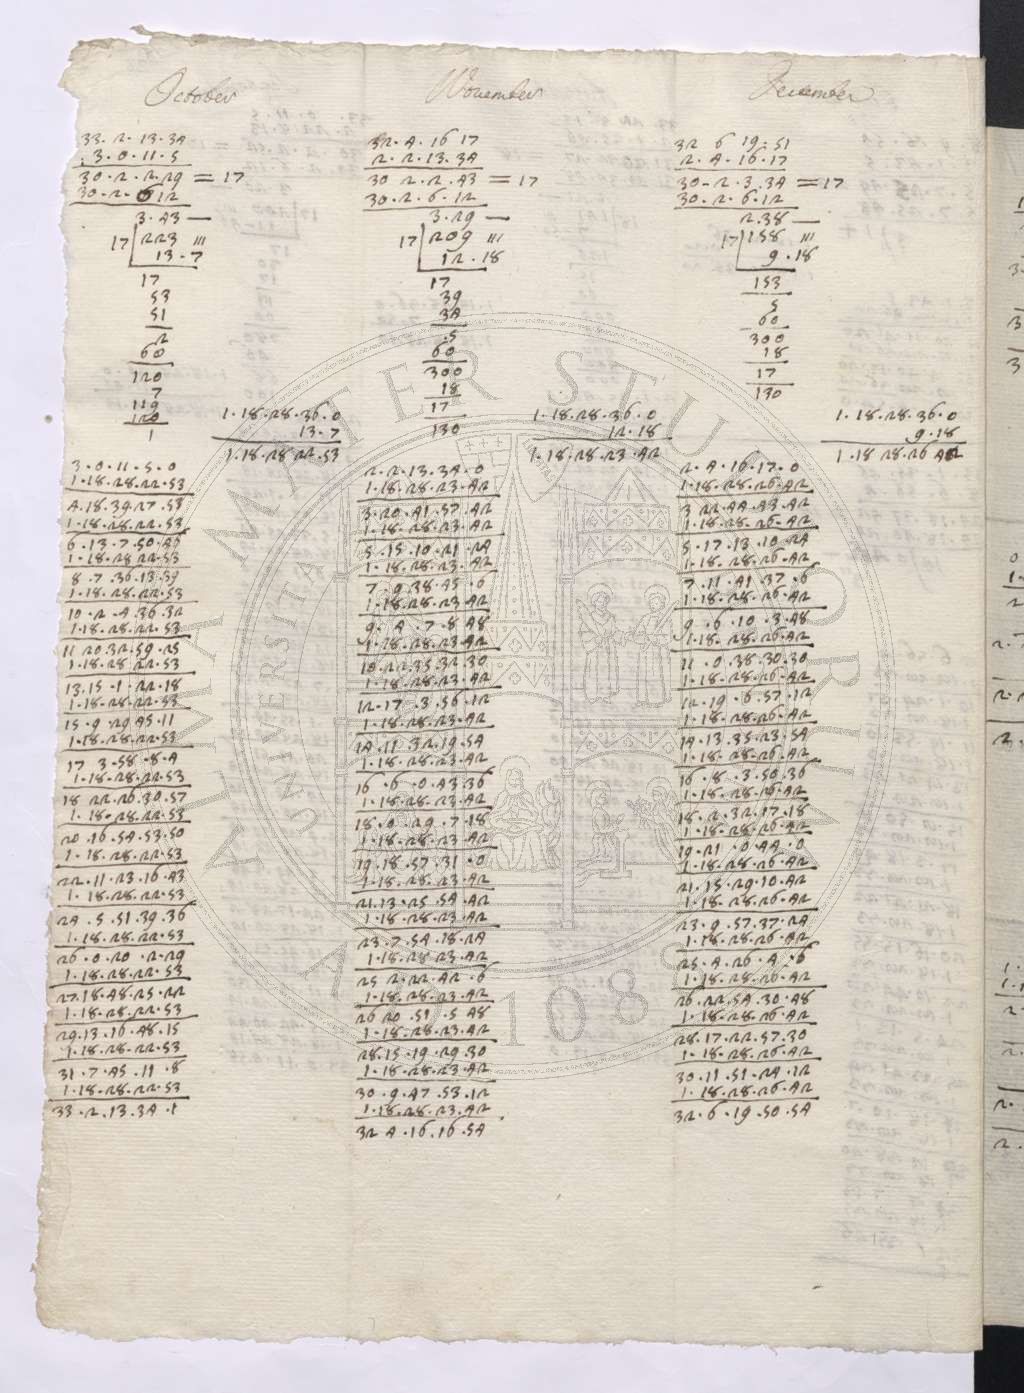 October
33.2.13.34
3.0.11.5
30.2.2.29 = 17
30.2.6.12
3.43 —
17 223 |||
13.7
17
53
51
2
60
120
7
119
120
1
1.18.28.36.0
13.7
1.18.28.22.53
3.0.11.5.0
1.18.28.22.53
4.18.39.27.53
1.18.28.22.53
6.13.7.50.46
1.18.28 22.53
8.7.36.13.39
1.18.28.22.53
10.2.4.36.32
1.18.28.22.53
11 20.32.59.25
1.18.28 22.53
13.15.1.22.18
1.18.28.22.53
15.9.29 45.11
1.18.28.22.53
17 3.58.8.4
1.18.28.22.53
18 22.26.30.57
1.18.28.22.53
20.16.54.53.50
1.18.28.22.53
22.11.23.16.43
1.18.28.22.53
24.5.51.39.36
1.18.28.22.53
26.0.20.2.29
1.18.28.22.53
27.18.48.25.22
1.18.28.22.53
29.13.16.48.15
1.18.28.22.53
31.7.45.11.8
1.18.28.22.53
33.2.13.34.1
Nouember
32.4.16 17
2.2.13.34
30 2.2.43 = 17
30.2.6.12
3.29 —
17 209 |||
12.18
17
39
34
5
60
300
18
17
130
1.18.28.36.0
12.18
1.18.28.23.42
2.2.13.34.0
1.18.28.23.42
3.20.41.57.42
1.18.28.23.42
5.15.10.21.24
1.18.28.23.42
7.9.38.45.6
1.18.28.23.42
9.4.7.8.48
1.18.28.23.42
10.22.35.32.30
1.18.28.23.42
12.17.3.56.12
1.18.28.23.42
14.11.32.19.54
1.18.28.23.42
16.6.0.43.36
1.18.28.23.42
18.0.29.7.18
1.18.28.23.42
19.18.57.31.0
1.18.28.23.42
21.13.25.54.42
1.18.28.23.42
23.7.54.18.24
1.18.28.23.42
25 2.22.42.6
1.18.28.23.42
26 20.51.5.48
1.18.28.23.42
28.15.19.29.30
1.18.28.23.42
30.9.47.53.12
1.18.28.23.42
32 4.16.16.54
December
32 6 19.51
2.4.16.17
30.2.3.34 = 17
30.2.6.12
2.38 —
17 158 |||
9.18
153
5
60
300
18
17
130
1.18.28.36.0
9.18
1.18.28.26 42
2.4.16.17.0
1.18.28.26.42
3 22.44.43.42
1.18.28.26.42
5.17.13.10.24
1.18.28.26.42
7.11.41.37.6
1.18.28.26.42
9.6.10.3.48
1.18.28.26.42
11.0.38.30.30
1.18.28.26.42
12.19.6.57.12
1.18.28.26.42
14.13.35.23.54
1.18.28.26.42
16.8.3.50.36
1.18.28.26.42
18.2.32.17.18
1.18.28.26.42
19.21.0.44.0
1.18.28.26.42
21.15.29.10.42
1.18.28.26.42
23.9.57.37.24
1.18.28.26.42
25.4.26.4.6
1.18.28.26.42
26.22.54.30.48
1.18.28.26.42
28.17.22.57.30
1.18.28.26.42
30.11.51.24.12
1.18.28.26.42
32.6.19.50.54
ALMA MATER STUDIORUM
A.D. 1088